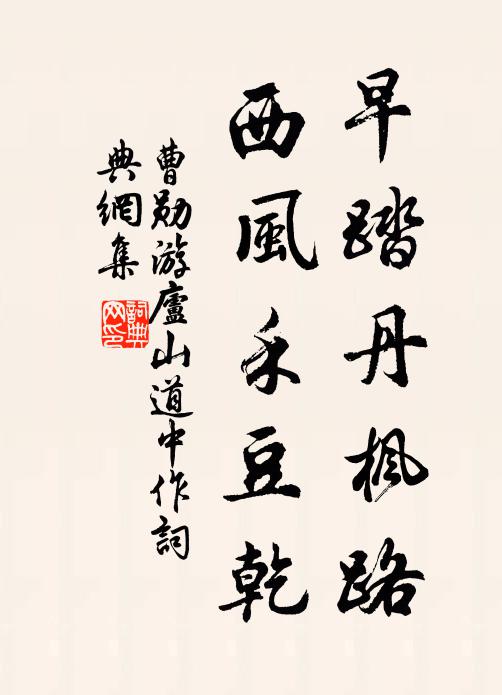 早踏丹楓路
西風禾豆乾
曹勛游廬山道中作詞
典網集
詞典
网印